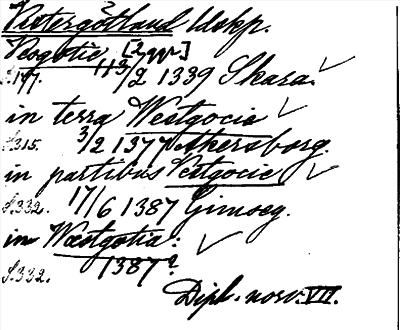 Västergötland ldskp.
Vesgotie [Eggr]
S. 197. 13/2 1339 Skara.
in terra Westgocie
S. 315. 3/2 1377 Akersborg.
in partibus Vestgocie
S. 332. 17/6 1387 Gimsøy.
in Wæstgotia:
S. 332. 1387?
Dipl. norv. VII.